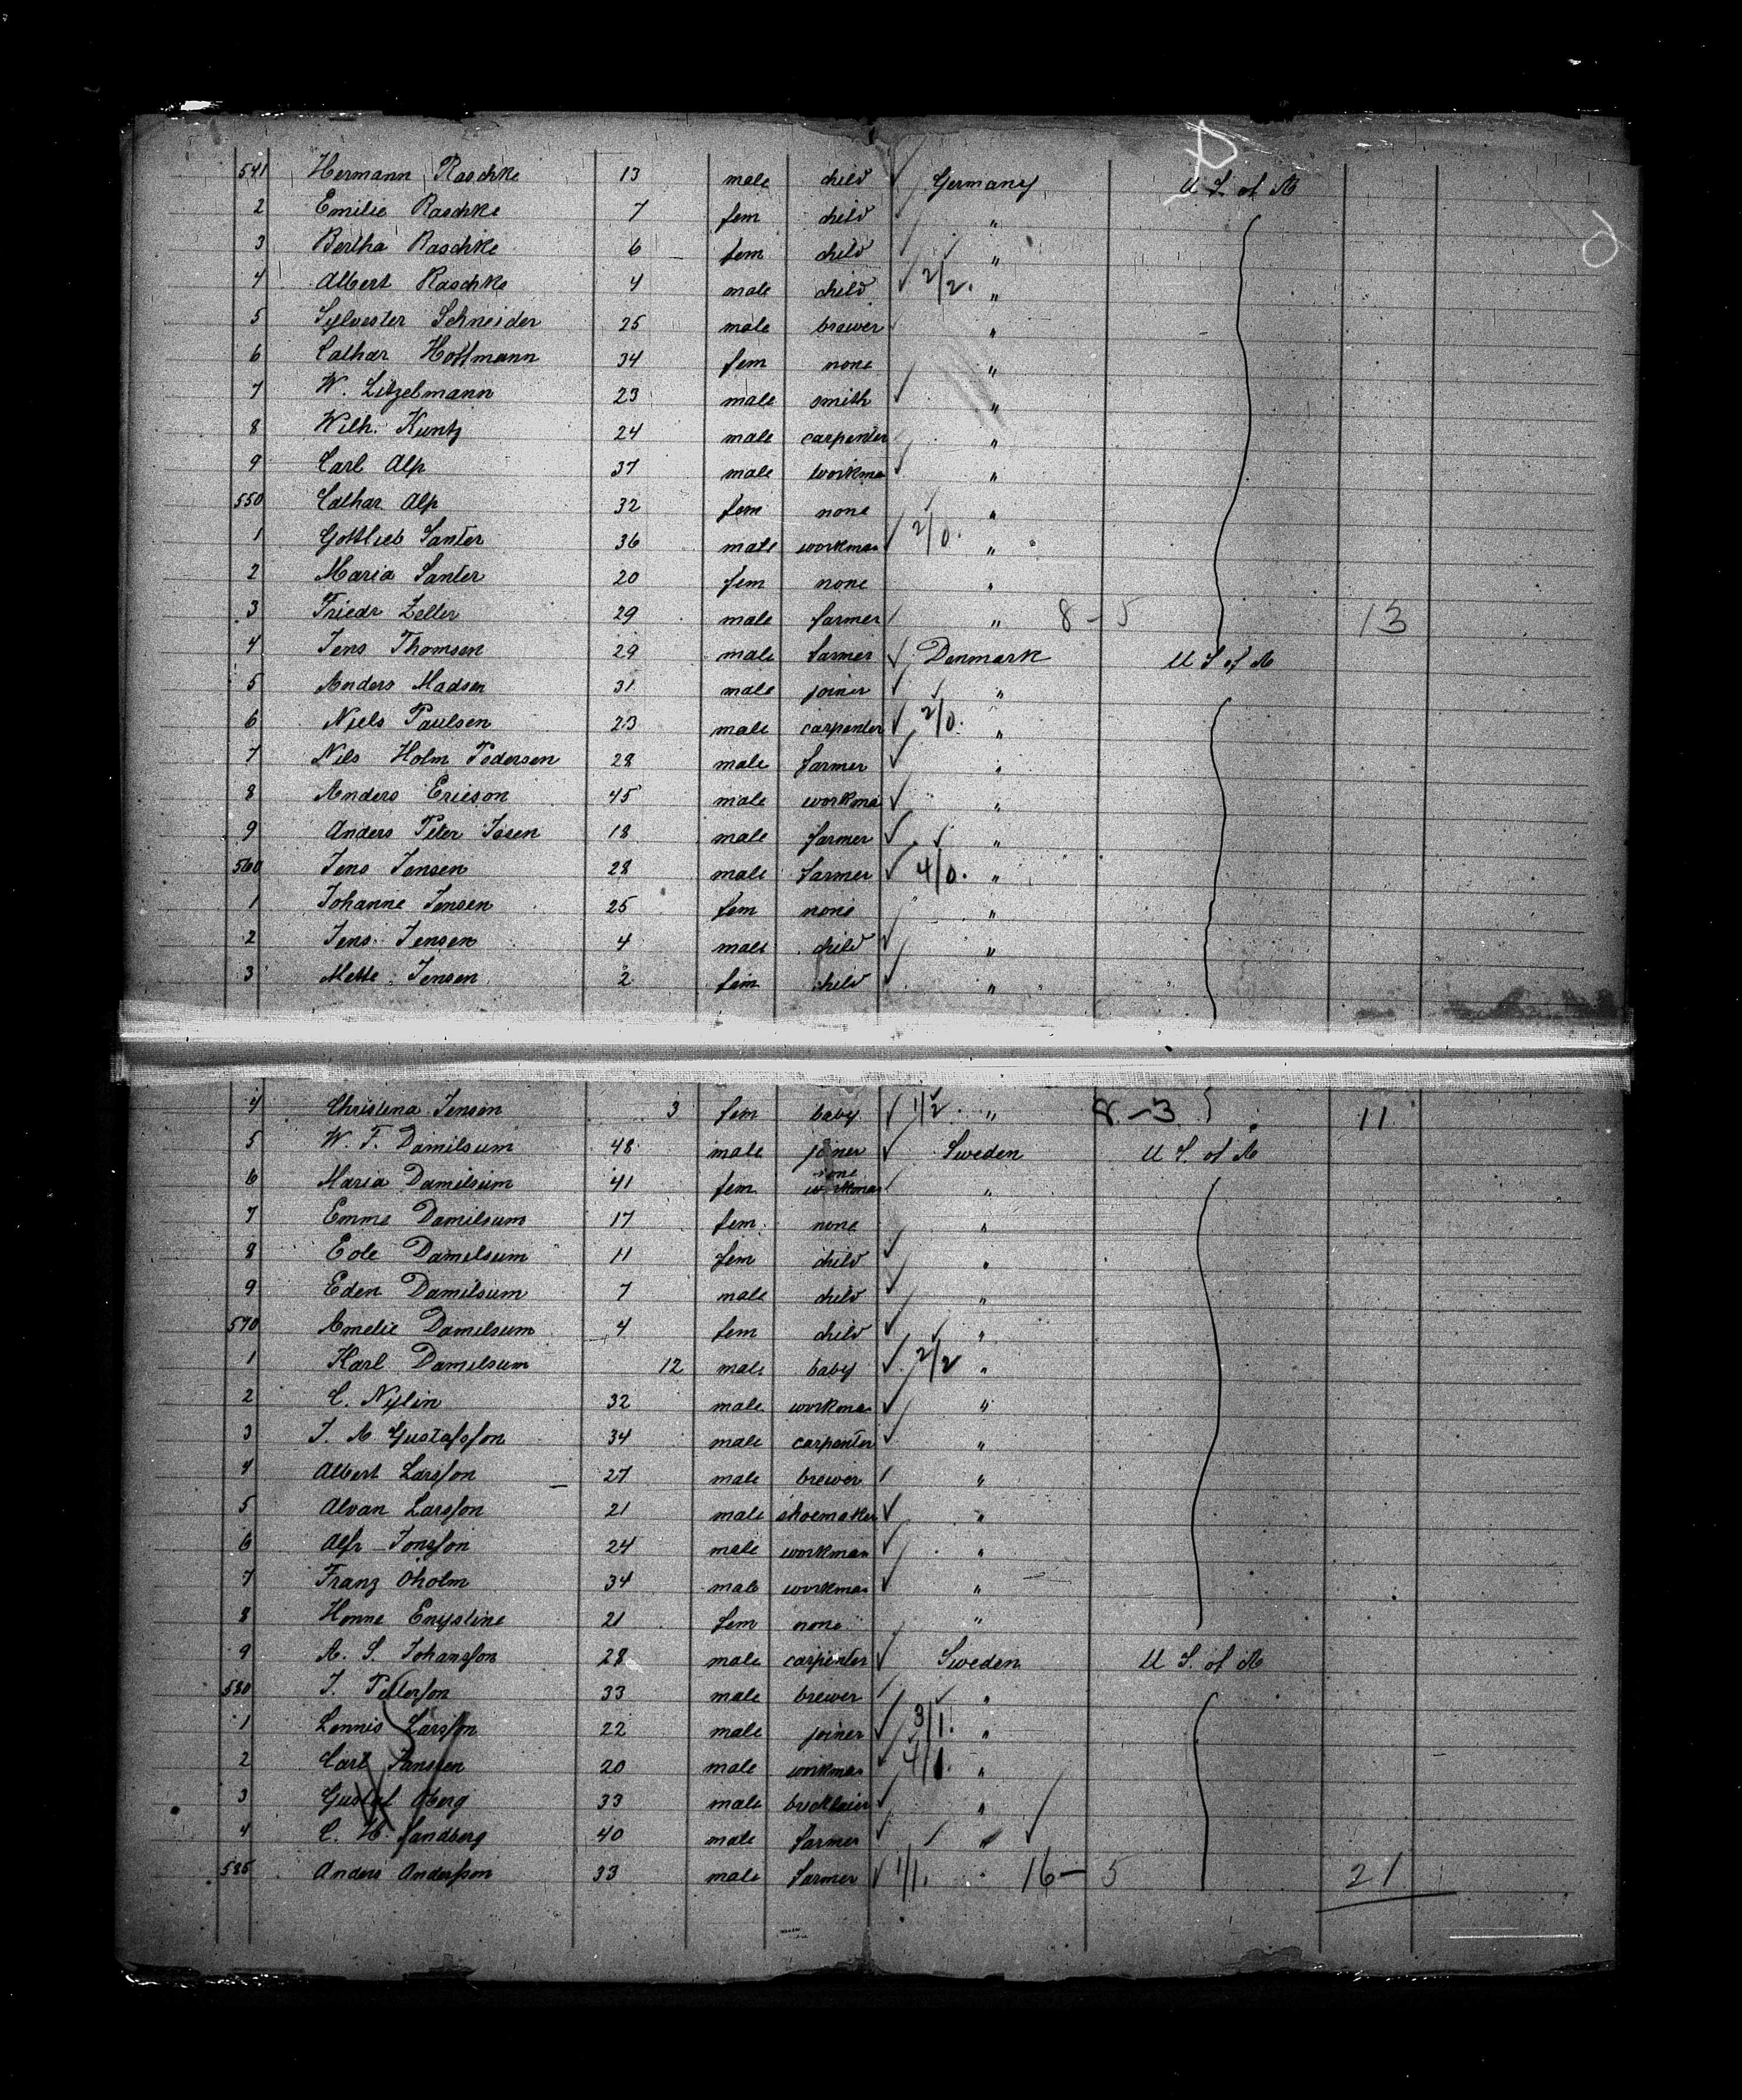 541 Hermann Raschke 13 male child Germany U S. of A
2 Emilie Raschke 7 fem child "
3 Bertha Raschke 6 fem child "
4 Albert Raschke 4 male child 2/2. "
5 Sylvester Schneider 25 male brewer "
6 Cathar Hoffmann 34 fem none "
7 W. Litzelmann 23 male smith "
8 Wilh. Kuntz 24 male carpenter "
9 Carl Alp 37 male workma "
550 Cathar Alp 32 fem none "
1 Gottlieb Santer 36 male workman 2/0. "
2 Maria Santer 20 fem none "
3 Friedr Zeller 29 male farmer " 8-5 13
4 Jens Thomsen 29 male farmer Denmark U S of A
5 Anders Madsen 31 male joiner "
6 Niels Paulsen 23 male carpenter 2/0. "
7 Nils Holm Pedersen 28 male farmer "
8 Anders Ericson 45 male workma "
9 Anders Peter Jasen 18 male farmer "
560 Jens Jensen 28 male farmer 4/0. "
1 Johanne Jensen 25 fem none "
2 Jens Jensen 4 male child "
3 Mette Jensen 2 fem child "
4 Christina Jensen 3 fem baby 1/2 " 8-3 11
5 W. F. Damilsum 48 male joiner Sweden U S. of A
6 Maria Damilsum 41 fem none workman "
7 Emma Damilsum 17 fem none "
8 Eole Damilsum 11 fem child "
9 Eden Damilsum 7 male child "
570 Amelie Damilsum 4 fem child "
1 Karl Damilsum 12 male baby 2/2 "
2 C. Nylin 32 male workma "
3 J. A Gustafsson 34 male carpenter "
4 Albert Larsson 27 male brewer "
5 Alvan Larsson 21 male shoemaker "
6 Alfr Jonsson 24 male workman "
7 Franz Oholm 34 male workman "
8 Honne Enystine 21 fem none "
9 A. S. Johansson 28 male carpenter Sweden U S. of A
580 J. Petterson 33 male brewer "
1 Lennis Larsson 22 male joiner 3/1. "
2 Carl Janssen 20 male workman 4/1. "
3 Gustaf Oberg 33 male bricklaier "
4 C. W. Sandberg 40 male farmer "
585 Anders Andersson 33 male farmer 1/1. 16-5 21